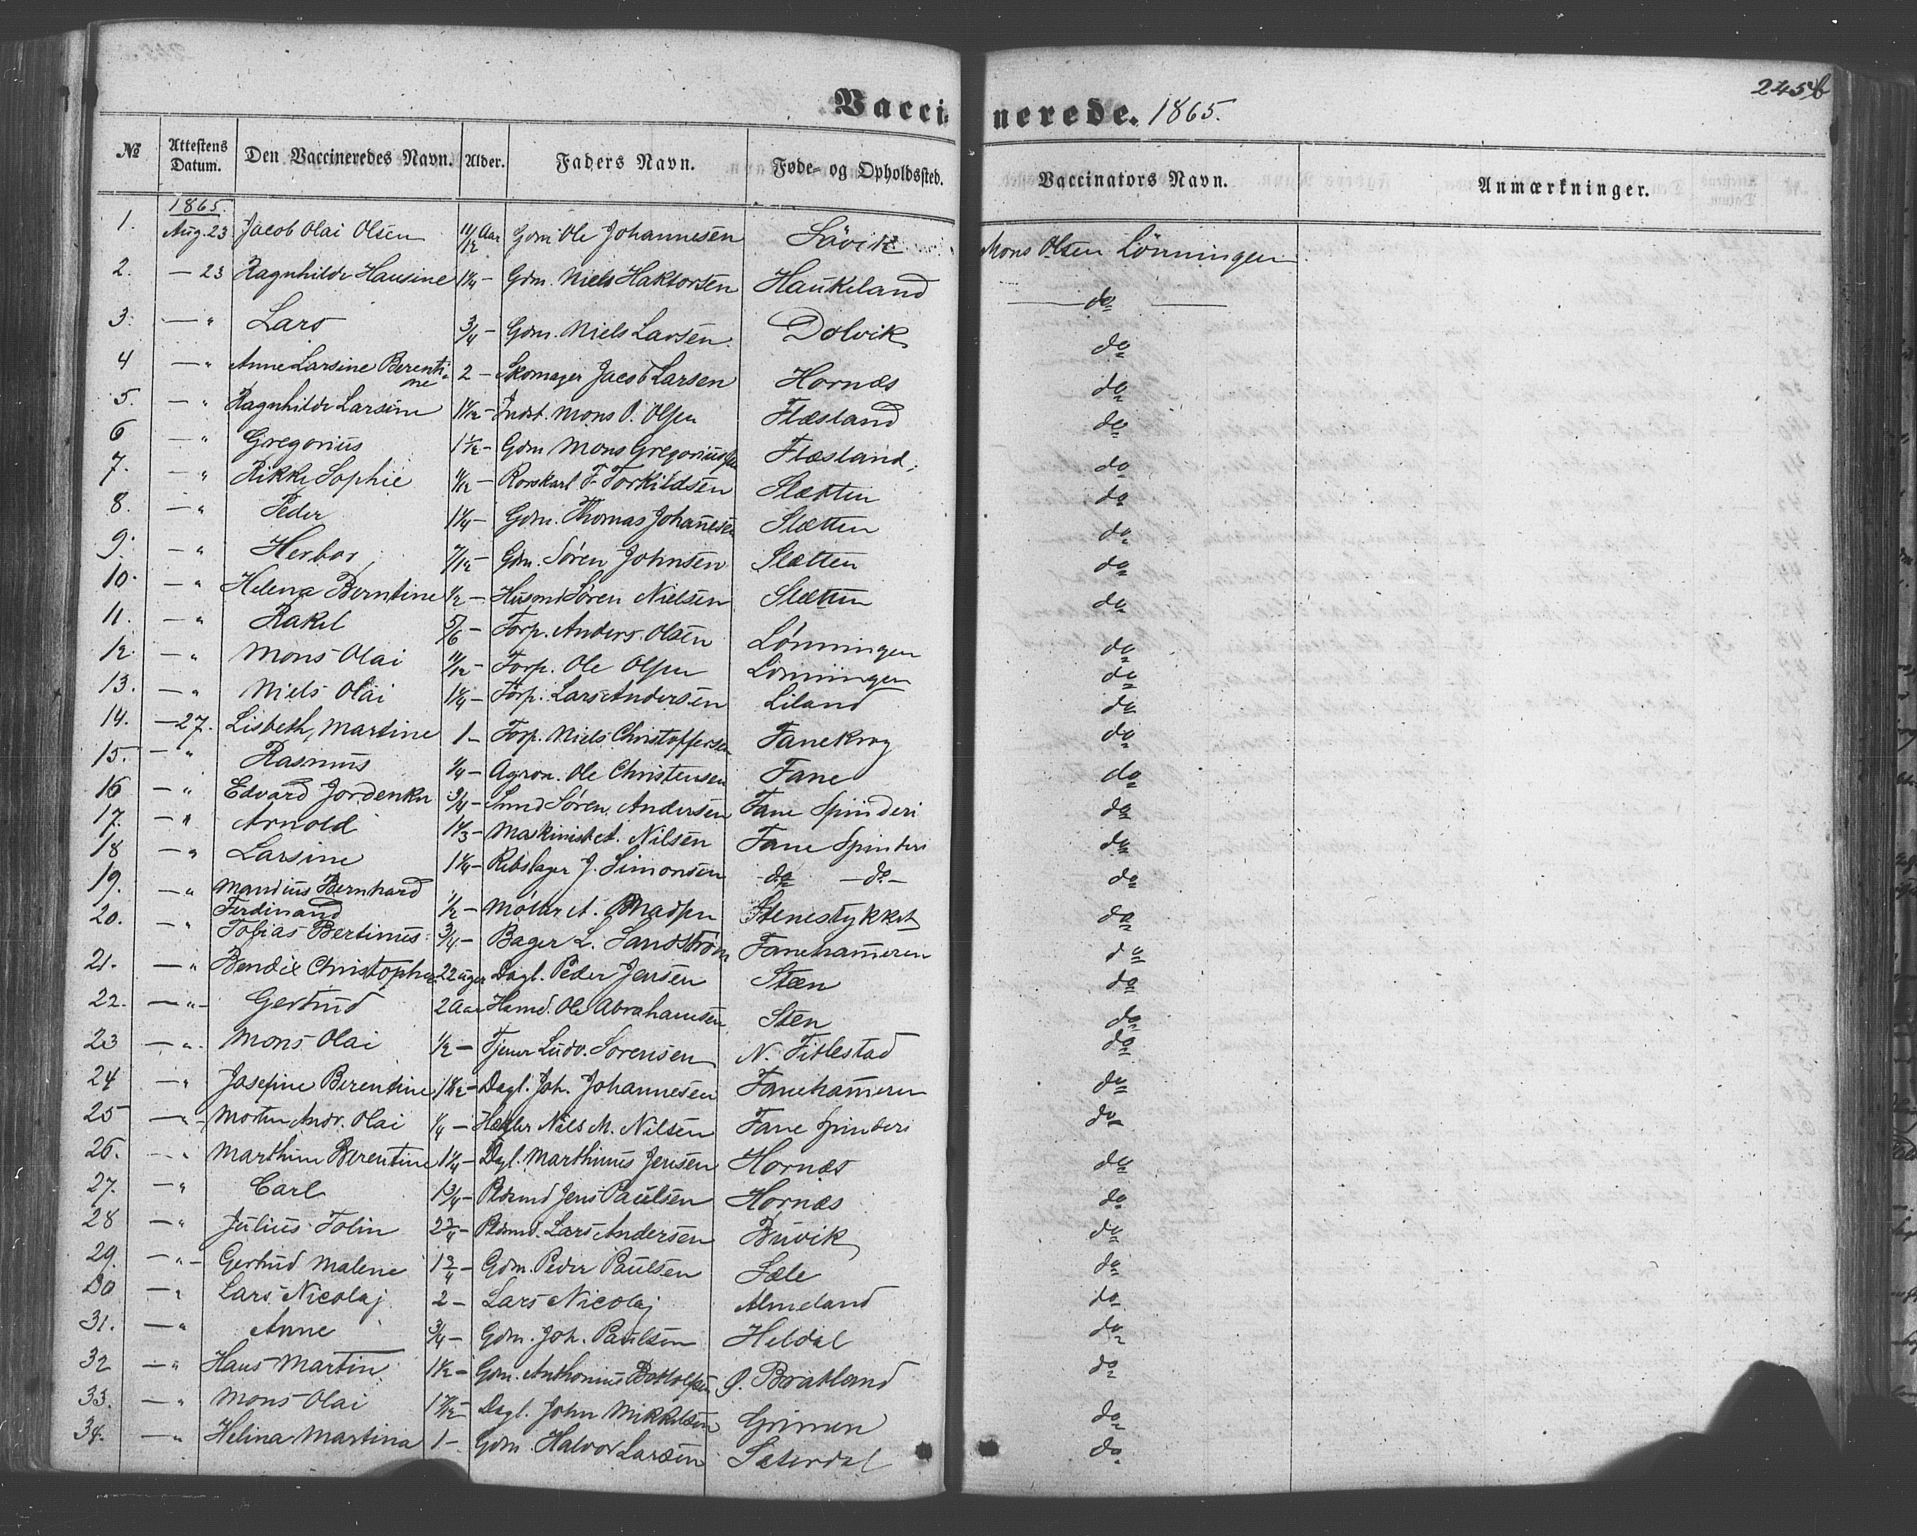 245b
Vaccinerede. 1865.
№ Attestens Datum. Den Vaccineredes Navn. Alder. Faders Navn. Føde- og Opholdssted. Vaccinators Navn. Anmærkninger.
1865.
1. Aug. 23 Jacob Olai Olsen 11/12 Aar Gdm Ole Johannesen Sövik Mons Olsen Lönningen
2. — 23 Ragnhilde Hansine 1 1/4 — Gdm. Niels Haktorsen Haukeland do
3. — " Lars 3/4 — Gdm. Niels Larsen Dolvik do
4 — " Anne Larsine Berentine 2 — Skomager Jacob Larsen Hornæs do
5. — " Ragnhilde Larsine — Indst. Mons O. Olsen Flæsland do
6 — " Gregorius 1 1/2 — Gdm Mons Gregoriussen Flæsland do
7. — " Rikke Sophie — Rorskarl F. Torkildsen Slætten do
8. — " Peder 1 1/4 — Gdm. Thomas Johanesen Slætten do
9. — " Herbor 7/12 — Gdm. Søren Johnsen Slætten do
10. — " Helena Berntine 1/2 — Husmd Søren Nielsen Slætten do
11. — " Rakel 5/6 — Forp. Anders Olsen Lønningen do
12. — " Mons Olai 11/12 — Forp. Ole Olsen Lönningen do
13. — " Niels Olai 1 1/4 — Forp. Lars Andersen Liland do
14. — 27. Lisbeth Martine 1 — Forp. Niels Christophersen Fanekrog do
15. — " Rasmus 1/4 — Agron. Ole Christensen Fane do
16 — " Edvard 3/4 — Søren Andersen Fane Spinderi do
17. — " Arnold 1 1/3 — Maskinist A. Nilsen Fane Spinderi do
18 — " Larsine 1 1/4 — Rebslager J. Simonsen do — do — do
19. — " Mandius Bernhard Ferdinand 1/2 — Møller A. Madsen Stenestykket do
20. — " Tobias Bertinus 3/4 — Bager L. Sandström Fanehameren do
21. — " Bendix Christopher 22 uger Dagl. Peder Jensen Steen do
22. — " — Gertrud 2 Aar Ole Abrahamsen Sten do
23 — " Mons Olai 1/2 — Tjener Ludv. Sörensen N. Titlestad do
24 — " Josefine Berentine 1 1/2 — Dagl. Joh. Johannesen Fanehameren do
25 — " — Morten Andr. Olai 1/4 — Nils M. Nilsen Fane Spinderi do
26. — " Marthine Berentine 1 1/4 — Dagl. Marthinus Jensen Hornæs do
27. — " Carl 1 3/4 — Jens Paulsen Hornæs do
28 — " Julius Tolin 2 3/4 — Lars Andersen Buvik do
29. — " — Gertrud Malene 1 3/4 — Gdm. Peder Paulsen Sæle do
30 — " Lars Nicolaj 2 — Lars Nicolaj Almeland do
31. — " Anne 3/4 — Gdm. Joh. Paulsen Heldal do
32 — " Hans Martin 1 1/2 — Gdm. Anthonius Bottolfsen Ø. Bratland do
33. — " Mons Olai — Dagl. John Mikkelsen Grimen do
34. — " Helina Martina 1 — Gdm. Halvor Larsen Sæterdal do